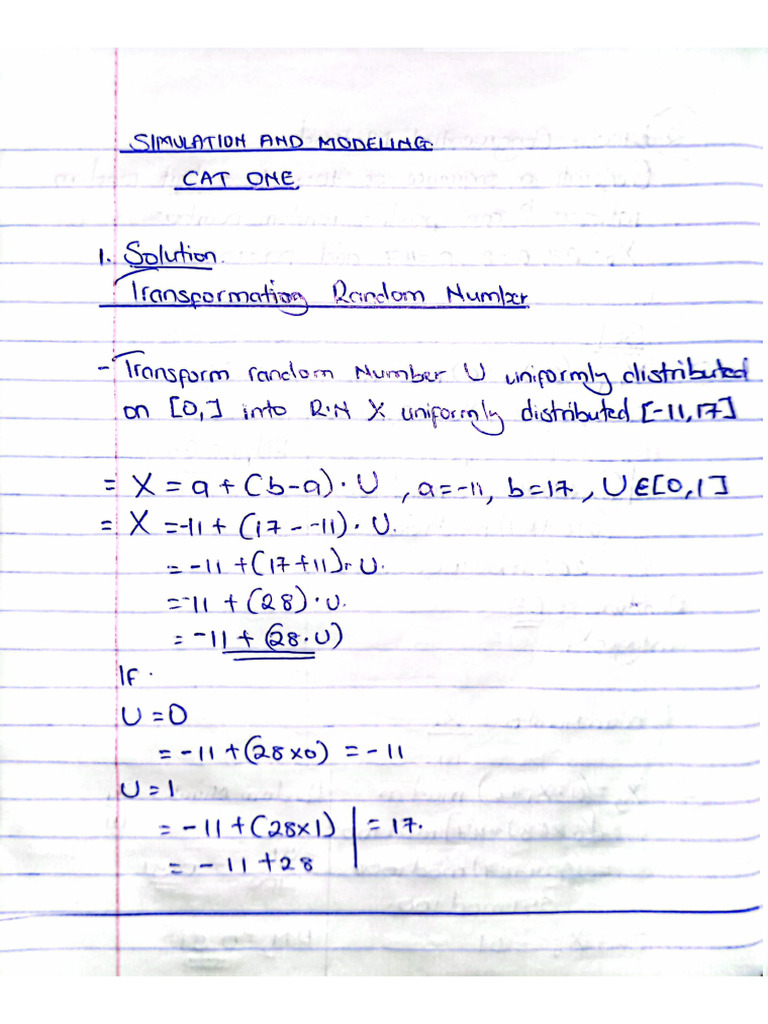 SIMULATION AND MODELING
CAT ONE
1. Solution.
Transformating Random Number
- Transform random Number U uniformly distributed
on [0,] into R.N X uniformly distributed [-11,17]
= X = a + (b-a) · U , a=-11, b=17 , U∈[0,1]
= X = -11 + (17 - -11) · U.
= -11 + (17+11) · U.
= -11 + (28) · U.
= -11 + (28·U)
If
U = 0
= -11 + (28×0) = -11
U = 1
= -11 + (28×1) | = 17.
= -11 + 28